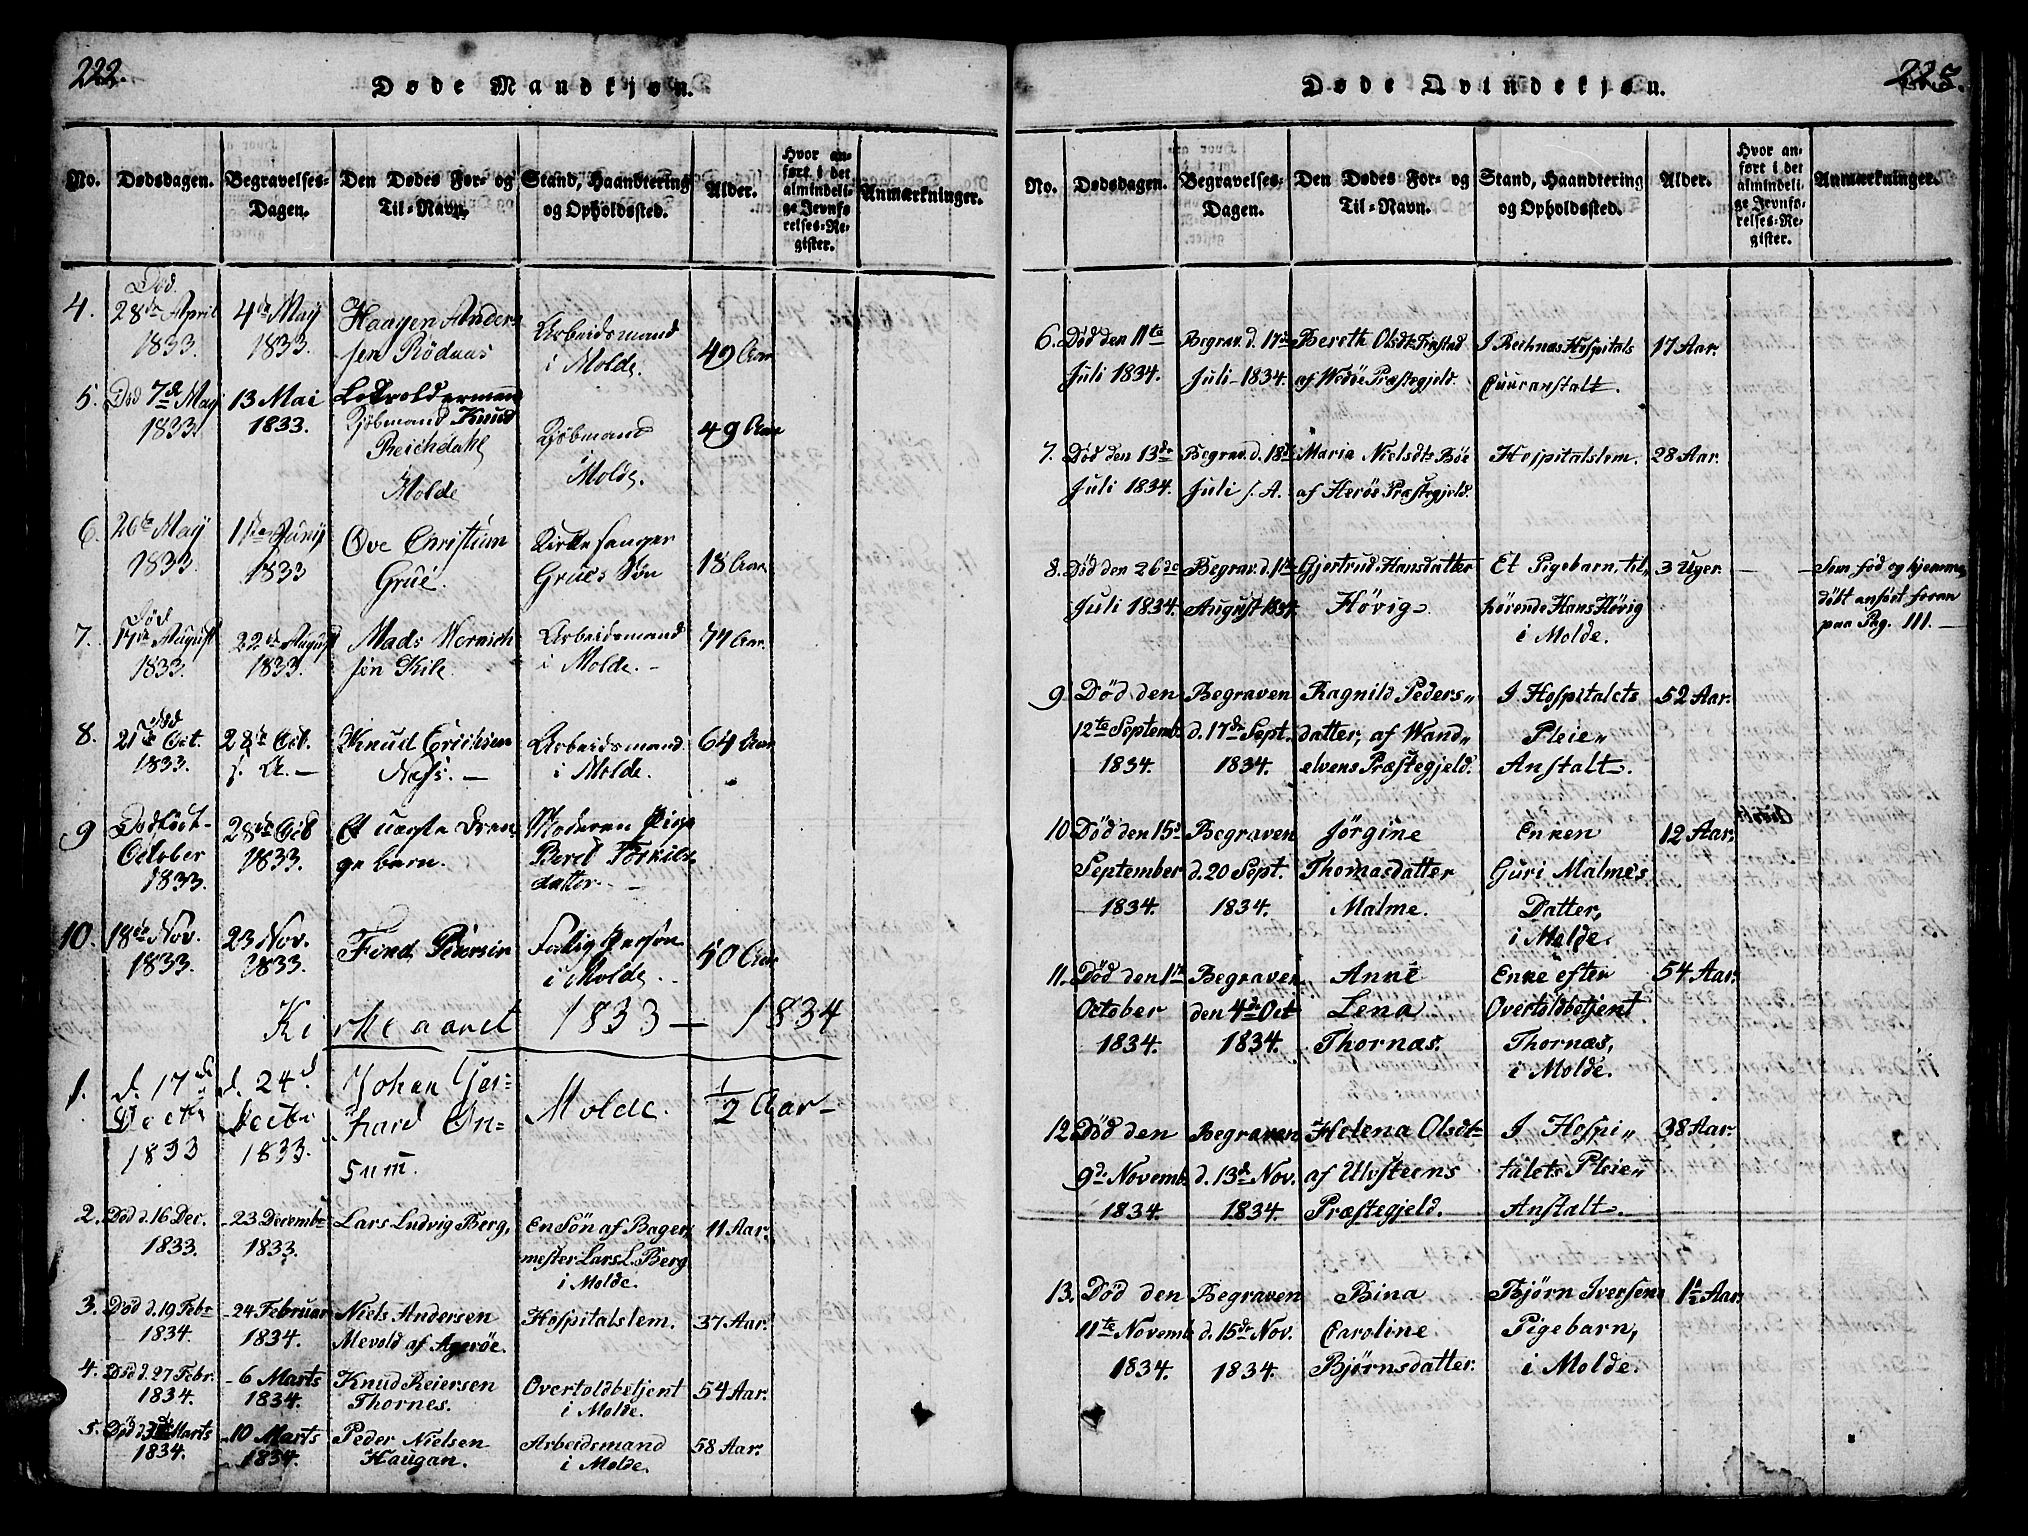 222.
Døde Mandkjøn.
No.
Dødsdagen.
Begravelses-
Dagen.
Den Dødes For- og
Til-Navn.
Stand, Haandtering
og Opholdssted.
Alder.
Hvor an-
ført i det
almindeli-
ge Jevnfø-
relses-Re-
gister.
Anmærkninger.
4.
Død
28de April
1833.
4de Maÿ
1833.
Haagen Ander-
sen Rödaas
Arbeidsmand
i Molde.
49 Aar
5.
Død 7de May
1833.
13 Mai
1833.
Kjöbmand Knud
Reichdahl
Molde
Kjöbmand
i
Molde.
49 Aar
6.
26te Maÿ
1833.
1ste Junÿ
1833
Ove Christian
Grue.
Kirkesanger
Grues Søn
18 Aar.
7.
Død
17de August
1833.
22de August
1833.
Mads Wernich
sen Kile
Arbeidsmand
i Molde. -
77 Aar.
8.
Død
21de Oct.
1833.
28de Oct.
s. A. -
Knud Erichsen
Næss. -
Arbeidsmand
i Molde.
64 Aar
9
Dødfødt-
October
1833.
28de Oct
1833.
Et uægte Dren
gebarn.
Moderen Pige
Beret Torkils-
datter. -
10.
18de Nov.
1833.
23 Nov.
1833.
Find Pedersen
Fattig Person
i Molde. -
50 Aar
Kirkeaaret 1833 — 1834
1.
d. 17de
Decbr
1833
d. 24d.
Decbr
1833.
Johan Ger-
hard On-
sum.
Molde.
1/2 Aar-
2.
Død d. 16 Dec.
1833.
- 23 Decembr
1833.
Lars Ludvig Berg,
En Søn af Bager,
mester Lars L. Berg
i Molde.
11 Aar.
3.
Død d. 19 Febr
1834.
- 24 Februar
1834.
Niels Andersen
Mevold af Agerøe.
Hospitalslem.
37 Aar.
4.
Død d. 27 Febr.
1834.
- 6 Marts
1834.
Knud Reiersen
Thornes.
Overtoldbetjent
i Molde.
54 Aar.
5.
Død d. Marts
1834.
- 10 Marts
1834.
Peder Nielsen
Haugan.
Arbeidsmand
i Molde.
58 Aar.
223.
Døde Qvindekjøn.
No.
Dødsdagen.
Begravelses-
Dagen.
Den Dødes For- og
Til-Navn.
Stand, Haandtering
og Opholdssted.
Alder.
Hvor an-
ført i det
almindeli-
ge Jevnfø-
relses-Re-
gister.
Anmærkninger.
6.
Død den 11te
Juli 1834.
Begrav. d. 17de
Juli - 1834.
Bereth Olsdtr
af Wedöe Præstegjeld.
I Reitnæs Hospitals
Cuuranstalt.
17 Aar.
7.
Død den 13de
Juli 1834.
Begrav. d. 18de
Juli s. A.
Maria Nielsdtr Böe
af Herøe Præstegjeld.
Hospitalslem.
28 Aar.
8.
Død den 26de
Juli 1834.
Begrav. d. 1ste
August 1834.
Gjertrud Hansdatter
Høvig.
Et Pigebarn, til,,
hörende Hans Høvig
i Molde.
3 Uger.
Som fød og hjemme,
døbt anført foran
paa Pag. 111. -
9.
Død den
12te Septemb.
1834.
Begraven
d. 17de Sept.
1834.
Ragnild Peders,,
datter, af Wand,,
elvens Præstegjeld.
I Hospitalets
Pleie,,
Anstalt.
52 Aar.
10.
Død den 15d
September
1834.
Begraven
d. 20 Sept.
1834.
Jörgine
Thomasdatter
Malme.
Enken
Guri Malmes
Datter,
i Molde.
12 Aar.
11.
Død den 1ste
October
1834.
Begraven
den 4de Oct
1834.
Anne
Lena
Thornæs.
Enke efter
Overtoldbetjent
Thornæs,
i Molde.
54 Aar.
12.
Død den
9de Novemb.
1834.
Begraven
d. 13de Nov.
1834.
Helena Olsdtr
af Ulvsteens
Præstegjeld.
I Hospi,,
talets Pleie,,
Anstalt.
38 Aar.
13.
Død den
11te Novemb.
1834.
Begraven
d. 15de Nov.
1834.
Bina
Caroline
Bjørnsdatter.
Bjørn Iversens
Pigebarn,
i Molde.
1½ Aar.